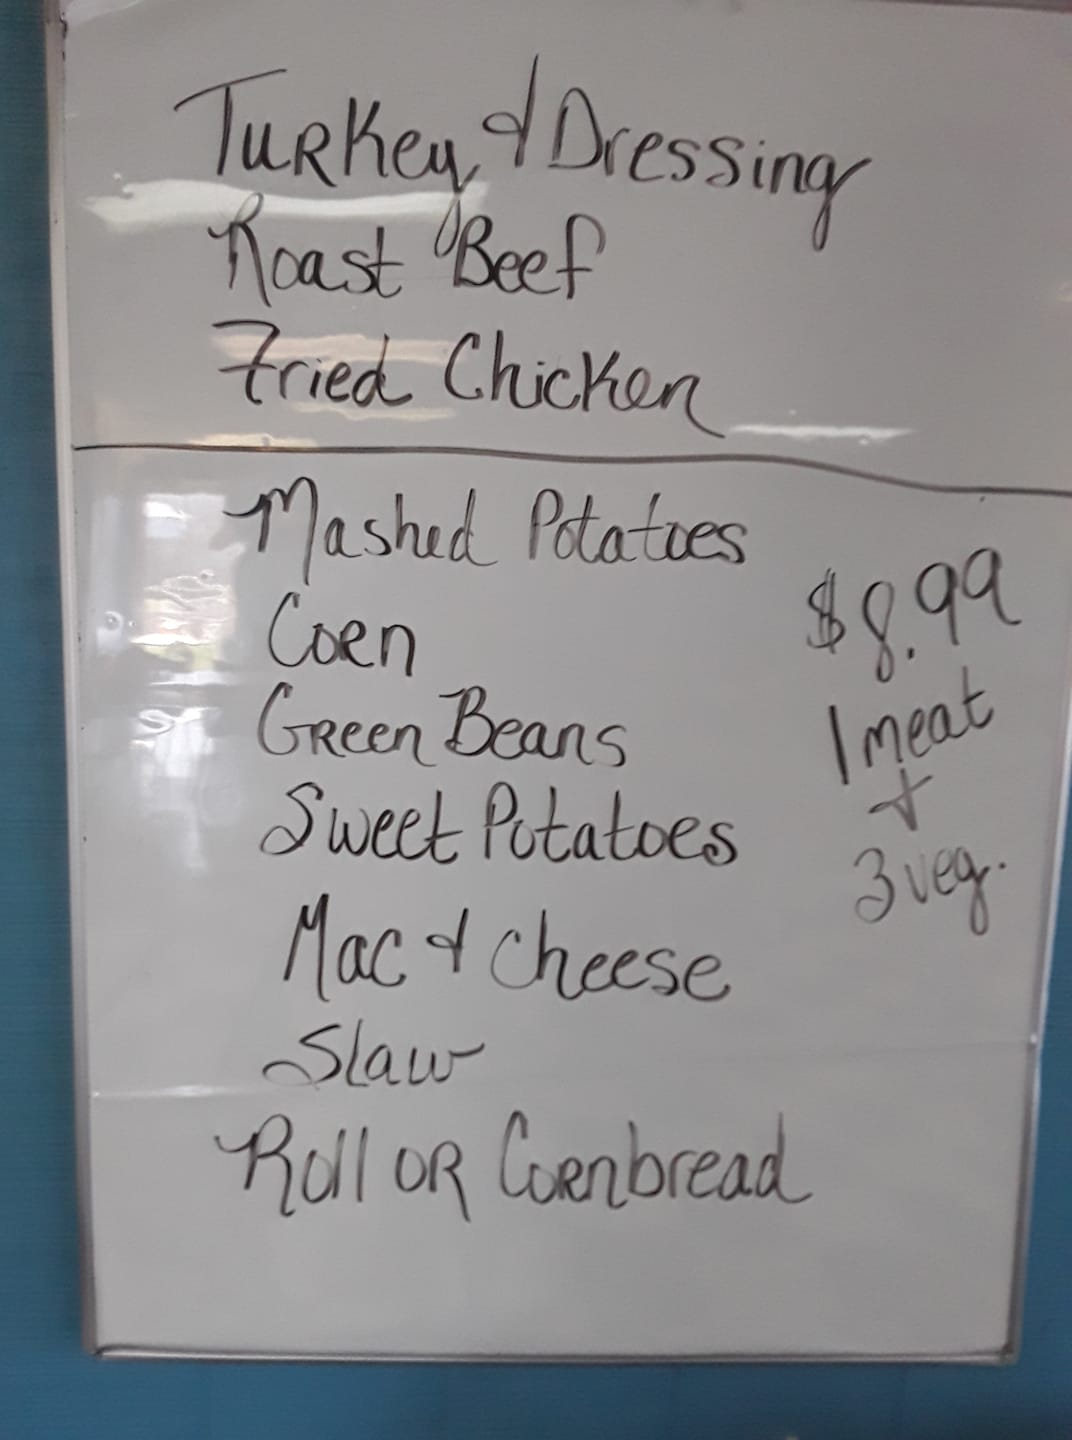 Turkey & Dressing
Roast Beef
Fried Chicken
Mashed Potatoes
Corn
Green Beans
Sweet Potatoes
Mac & Cheese
Slaw
Roll OR Cornbread
$8.99
1 meat
+
3 veg.